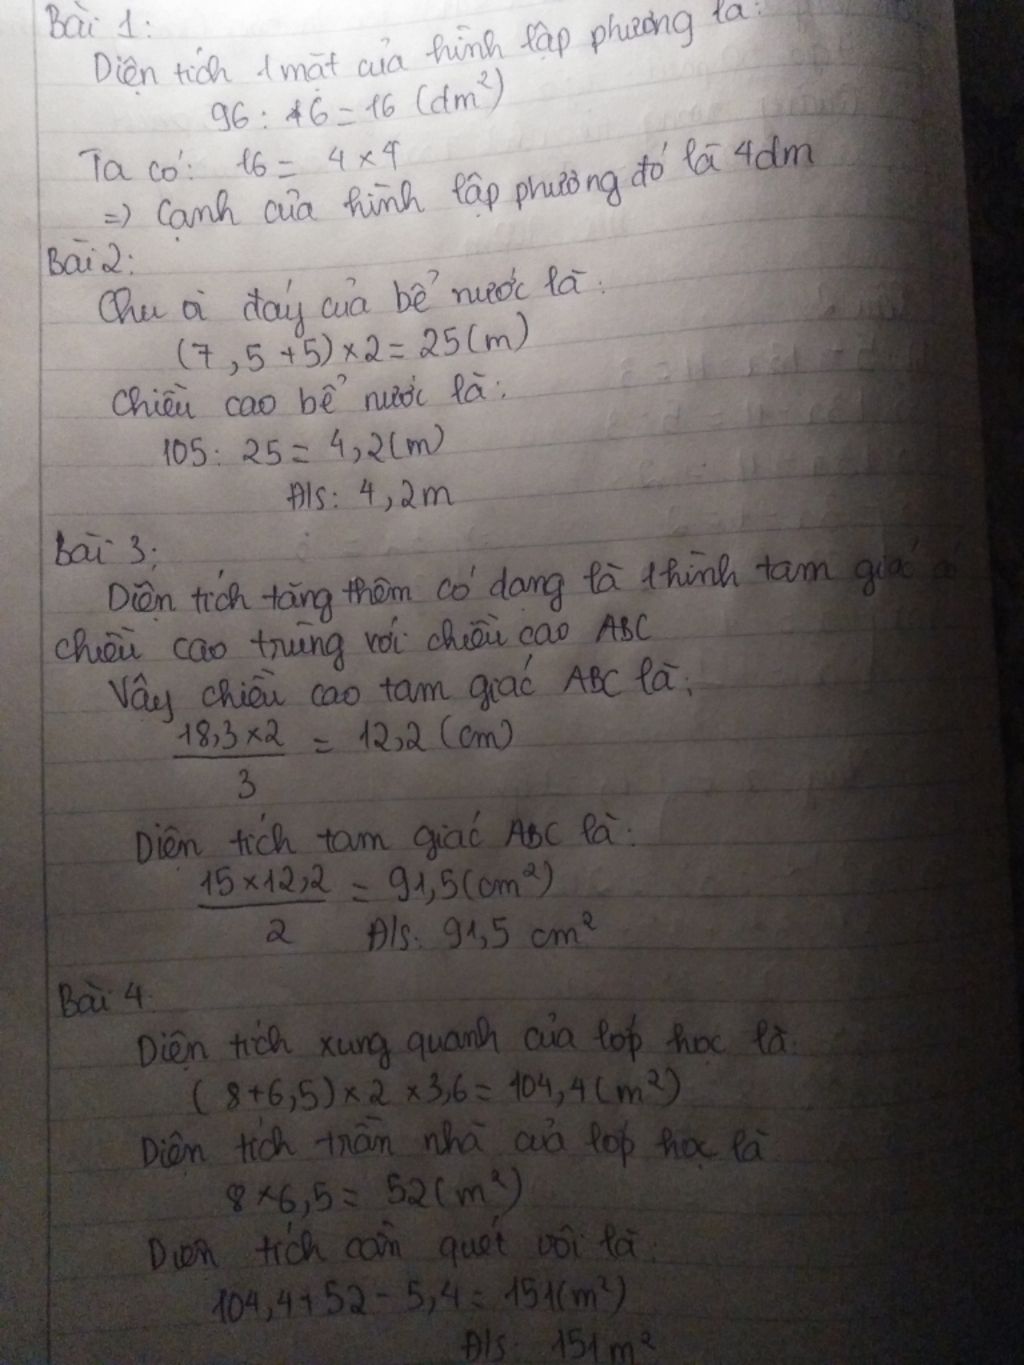 Bài 1:
Diện tích 1 mặt của hình lập phương là:
96 : 6 = 16 (dm²)
Ta có: 16 = 4 × 4
=> Cạnh của hình lập phương đó là 4dm
Bài 2:
Chu vi đáy của bể nước là:
(7,5 + 5) × 2 = 25 (m)
Chiều cao bể nước là:
105 : 25 = 4,2 (m)
Đ/s: 4,2m
Bài 3:
Diện tích tăng thêm có dạng là 1 hình tam giác có
chiều cao trùng với chiều cao ABC
Vậy chiều cao tam giác ABC là:
18,3 × 2 / 3 = 12,2 (cm)
Diện tích tam giác ABC là:
15 × 12,2 / 2 = 91,5 (cm²)
Đ/s: 91,5 cm²
Bài 4:
Diện tích xung quanh của lớp học là:
(8 + 6,5) × 2 × 3,6 = 104,4 (m²)
Diện tích trần nhà của lớp học là
8 × 6,5 = 52 (m²)
Diện tích cần quét vôi là:
104,4 + 52 - 5,4 = 151 (m²)
Đ/s: 151 m²